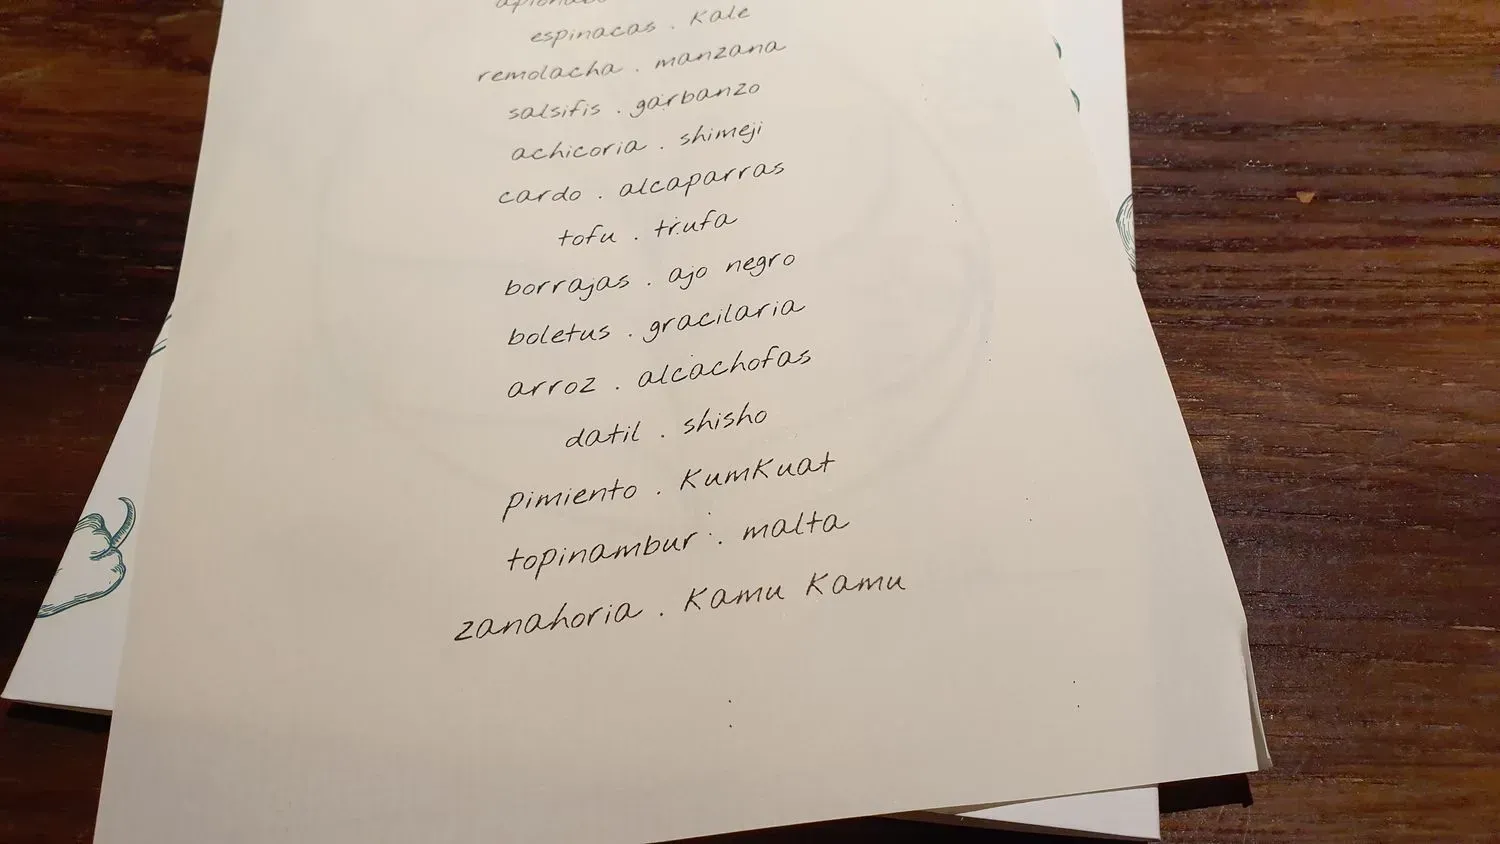 espinacas . Kale
remolacha . manzana
salsifis . garbanzo
achicoria . shimeji
cardo . alcaparras
tofu . trufa
borrajas . ajo negro
boletus . gracilaria
arroz . alcachofas
datil . shisho
pimiento . KumKuat
topinambur . malta
zanahoria . Kamu Kamu